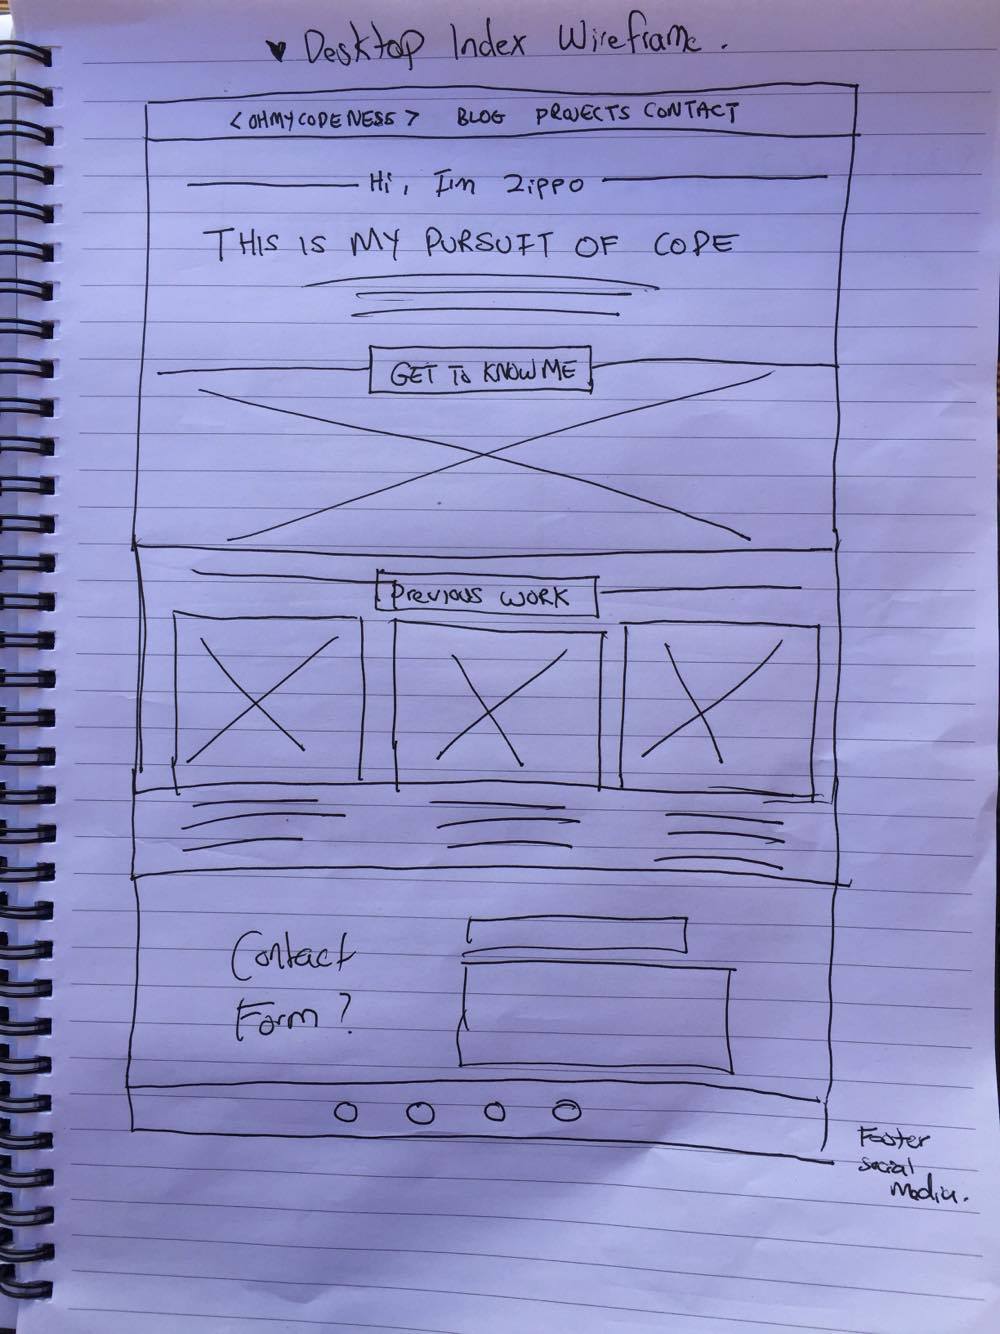 ♥ Desktop Index Wireframe.
<OHMYCODENESS> BLOG PROJECTS CONTACT
Hi, I'm Zippo
THIS IS MY PURSUIT OF CODE
GET TO KNOW ME
Previous WORK
Contact
Form?
Footer
social
Media.